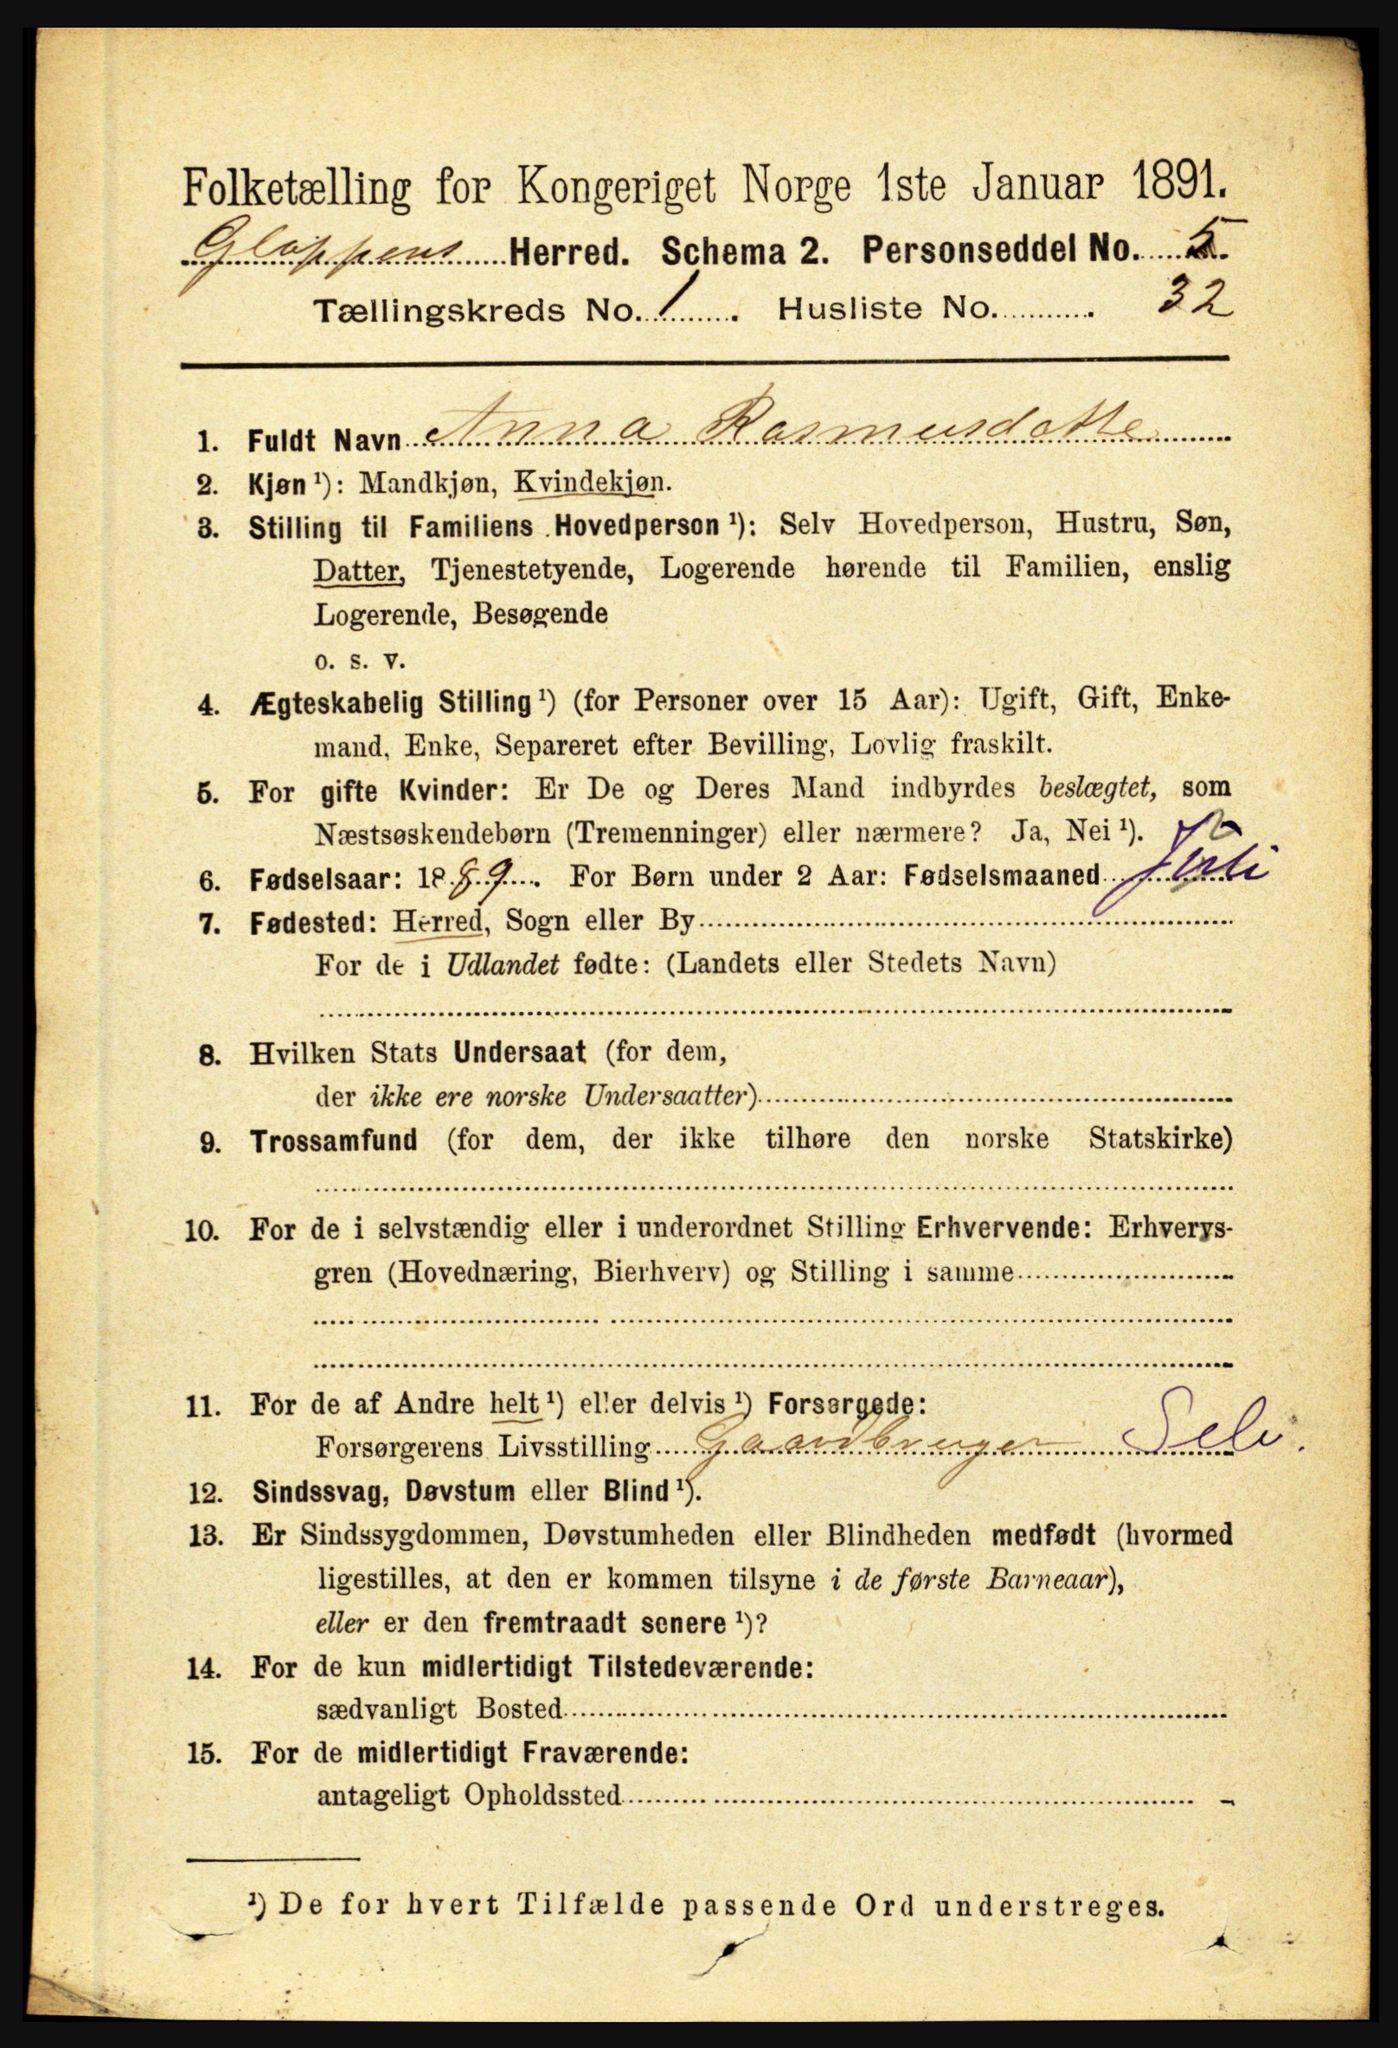 Folketælling for Kongeriget Norge 1ste Januar 1891.
Gloppens Herred. Schema 2. Personseddel No. 5.
Tællingskreds No. 1. Husliste No. 32
1. Fuldt Navn Anna Rasmusdatte
2. Kjøn ¹): Mandkjøn, Kvindekjøn.
3. Stilling til Familiens Hovedperson ¹): Selv Hovedperson, Hustru, Søn,
Datter, Tjenestetyende, Logerende hørende til Familien, enslig
Logerende, Besøgende
o. s. v.
4. Ægteskabelig Stilling ¹) (for Personer over 15 Aar): Ugift, Gift, Enke-
mand, Enke, Separeret efter Bevilling, Lovlig fraskilt.
5. For gifte Kvinder: Er De og Deres Mand indbyrdes beslægtet, som
Næstsøskendebørn (Tremenninger) eller nærmere? Ja, Nei ¹).
6. Fødselsaar: 1889. For Børn under 2 Aar: Fødselsmaaned Juli
7. Fødested: Herred, Sogn eller By
For de i Udlandet fødte: (Landets eller Stedets Navn)
8. Hvilken Stats Undersaat (for dem,
der ikke ere norske Undersaatter)
9. Trossamfund (for dem, der ikke tilhøre den norske Statskirke)
10. For de i selvstændig eller i underordnet Stilling Erhvervende: Erhvervs-
gren (Hovednæring, Bierhverv) og Stilling i samme
11. For de af Andre helt ¹) eller delvis ¹) Forsørgede:
Forsørgerens Livsstilling Gaardbruger Selv.
12. Sindssvag, Døvstum eller Blind ¹).
13. Er Sindssygdommen, Døvstumheden eller Blindheden medfødt (hvormed
ligestilles, at den er kommen tilsyne i de første Barneaar),
eller er den fremtraadt senere ¹)?
14. For de kun midlertidigt Tilstedeværende:
sædvanligt Bosted
15. For de midlertidigt Fraværende:
antageligt Opholdssted
¹) De for hvert Tilfælde passende Ord understreges.